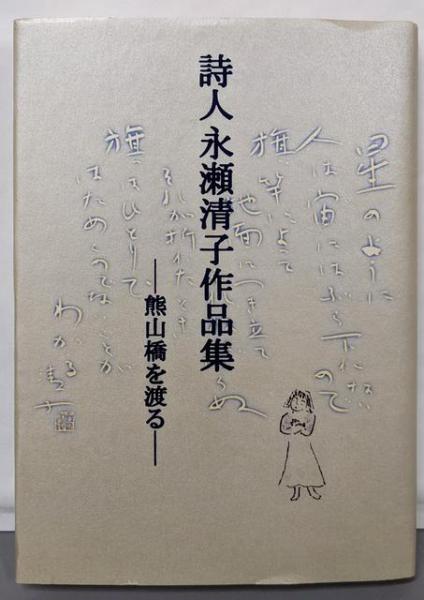 詩人 永瀬清子作品集
―熊山橋を渡る―
星のように
人は宙にはぶら下れない
ので
旗竿によって
地面につき立て
それが折れたとき
旗はひとりで
はためくのでないことが
わかる 清子